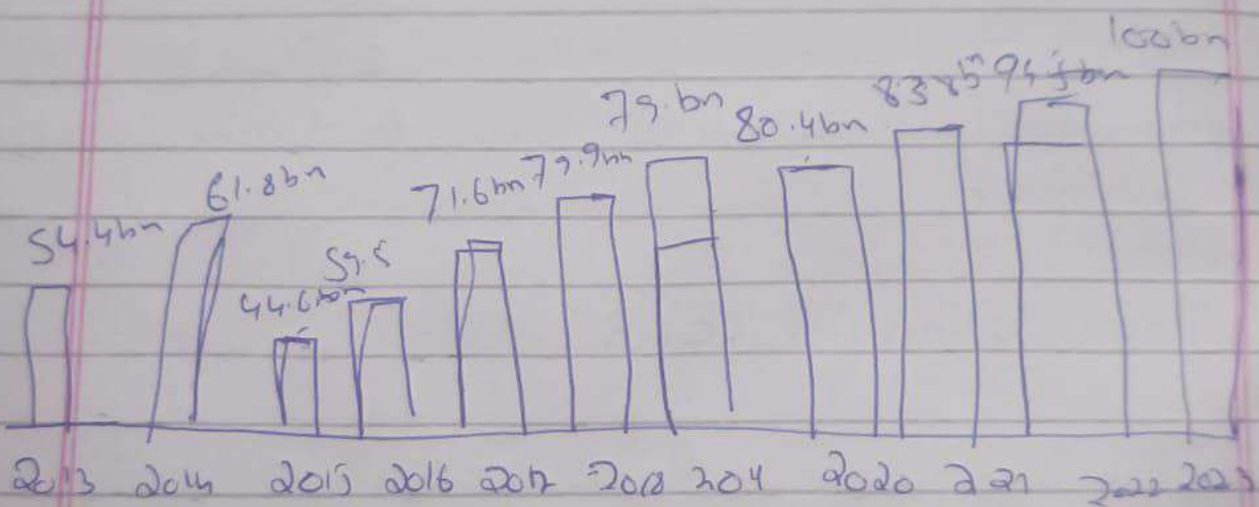 54.4bn 61.8bn 44.6bn 59.5 71.6bn 79.9bn 79.bn 80.4bn 83.8bn 100bn
2013 2014 2015 2016 2017 2018 204 2020 221 2022 2023